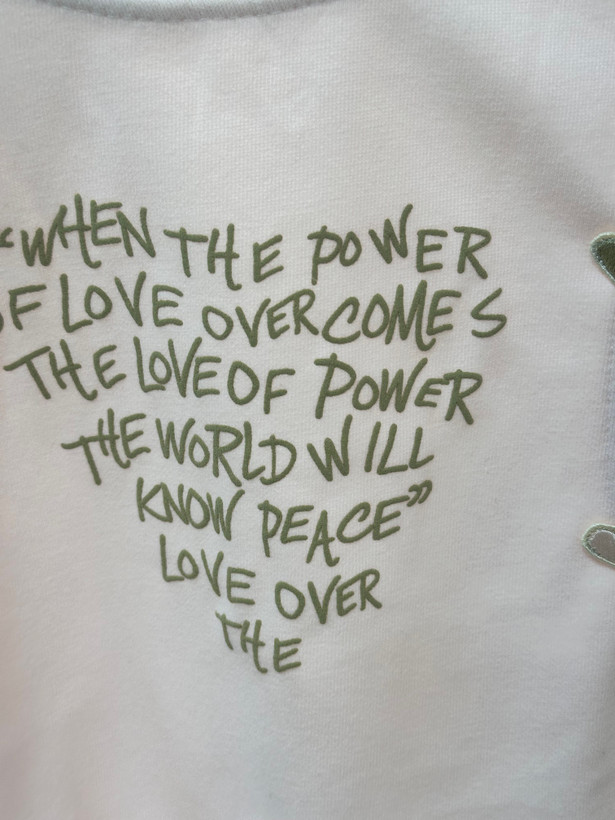 “WHEN THE POWER
OF LOVE OVERCOMES
THE LOVE OF POWER
THE WORLD WILL
KNOW PEACE”
LOVE OVER
THE